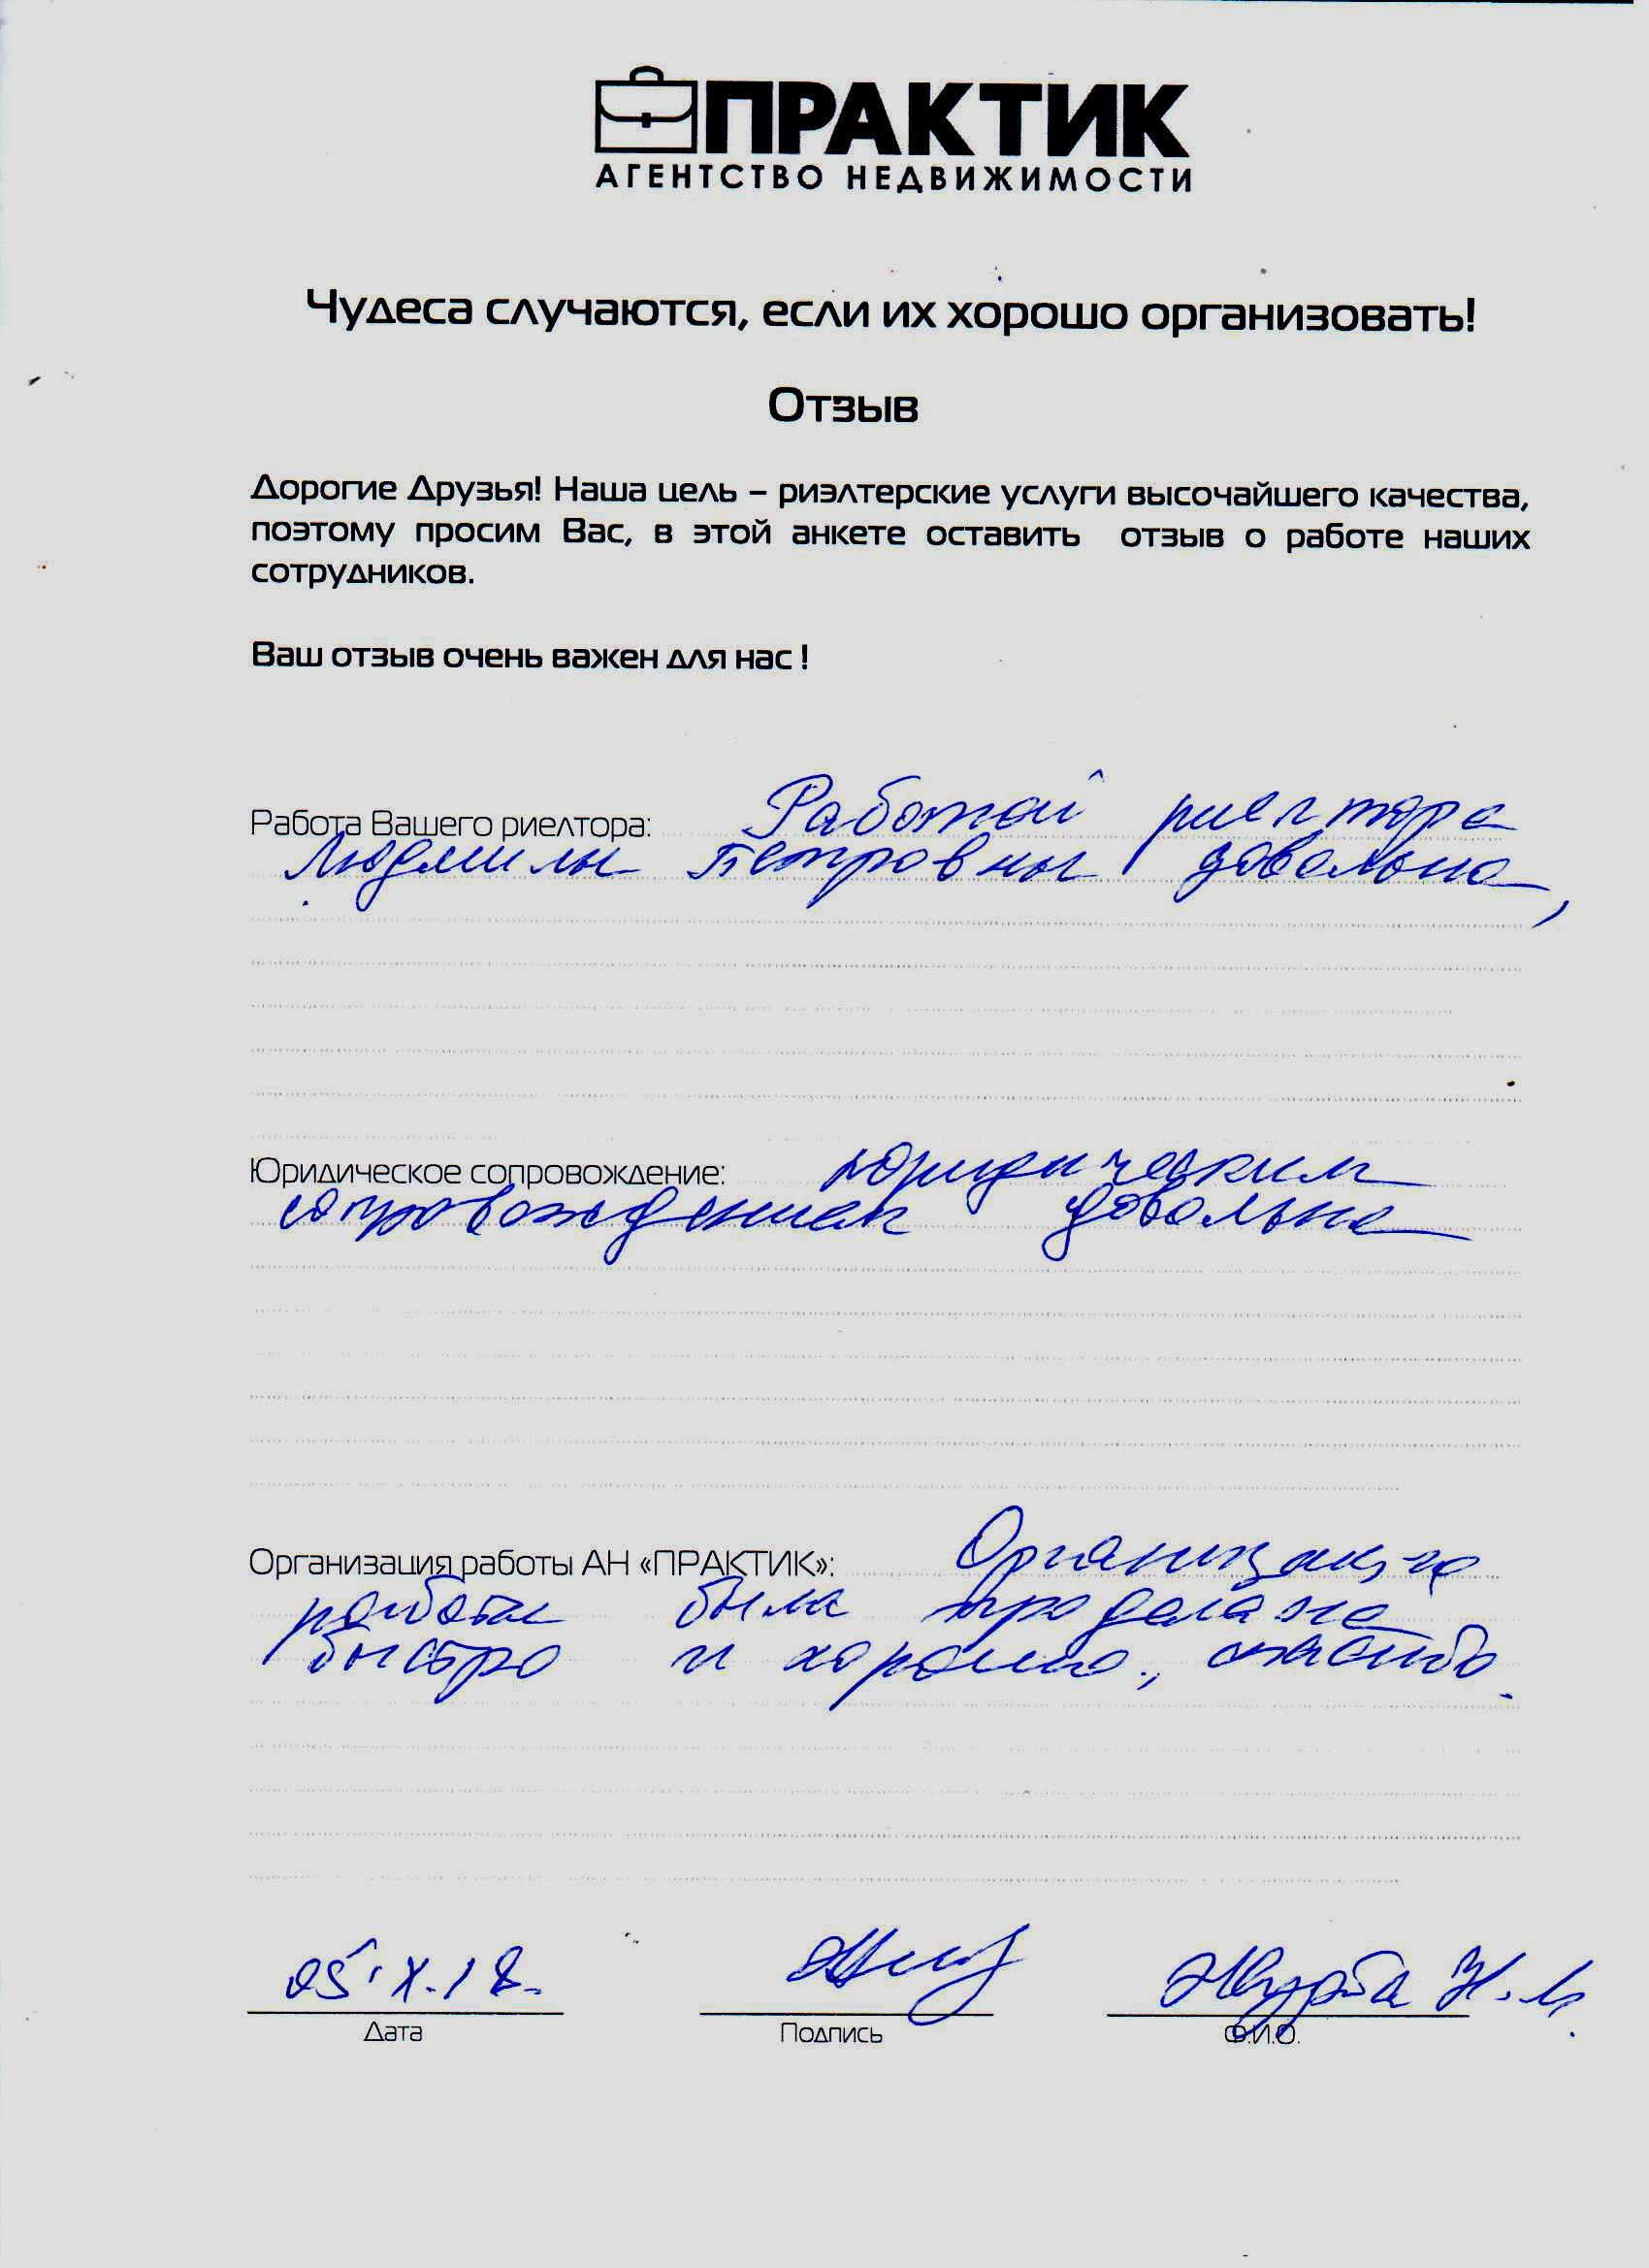 ПРАКТИК
АГЕНТСТВО НЕДВИЖИМОСТИ
Чудеса случаются, если их хорошо организовать!
Отзыв
Дорогие Друзья! Наша цель – риэлтерские услуги высочайшего качества,
поэтому просим Вас, в этой анкете оставить отзыв о работе наших
сотрудников.
Ваш отзыв очень важен для нас !
Работа Вашего риелтора: Работой риелтора
Людмилы Петровны довольна,
Юридическое сопровождение: юридическим
сопровождением довольна
Организация работы АН «ПРАКТИК»: Организация
работы была проделана
быстро и хорошо., спасибо.
05.X.18.
Дата
Подпись
Ф.И.О.